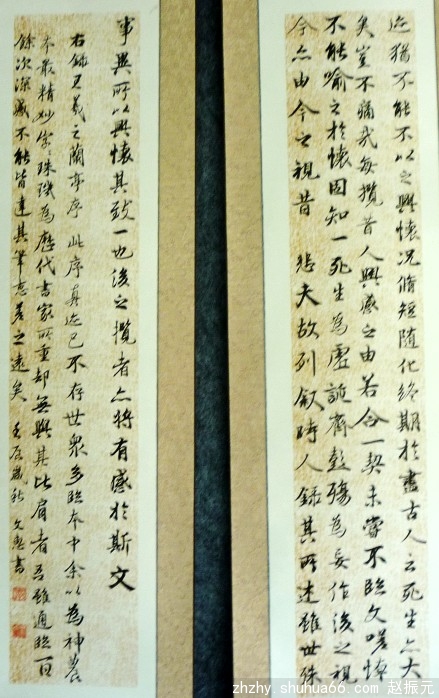 迹猶不能不以之興懷況脩短隨化終期於盡古人云死生亦大
矣豈不痛哉每攬昔人興感之由若合一契未嘗不臨文嗟悼
不能喻之於懷固知一死生為虛誕齊彭殤為妄作後之視
今亦由今之視昔 悲夫故列敘時人錄其所述雖世殊
事異所以興懷其致一也後之攬者亦將有感於斯文
右錄王羲之蘭亭序 此序真迹已不存世眾多臨本中余以為神龍
本最精妙字珠璣為歷代書家所重却無與其比肩者吾雖通臨百
餘次深感不能皆達其筆意差之遠矣 壬辰歲秋 文惠書
zhzhy.shuhua66.com 赵振元